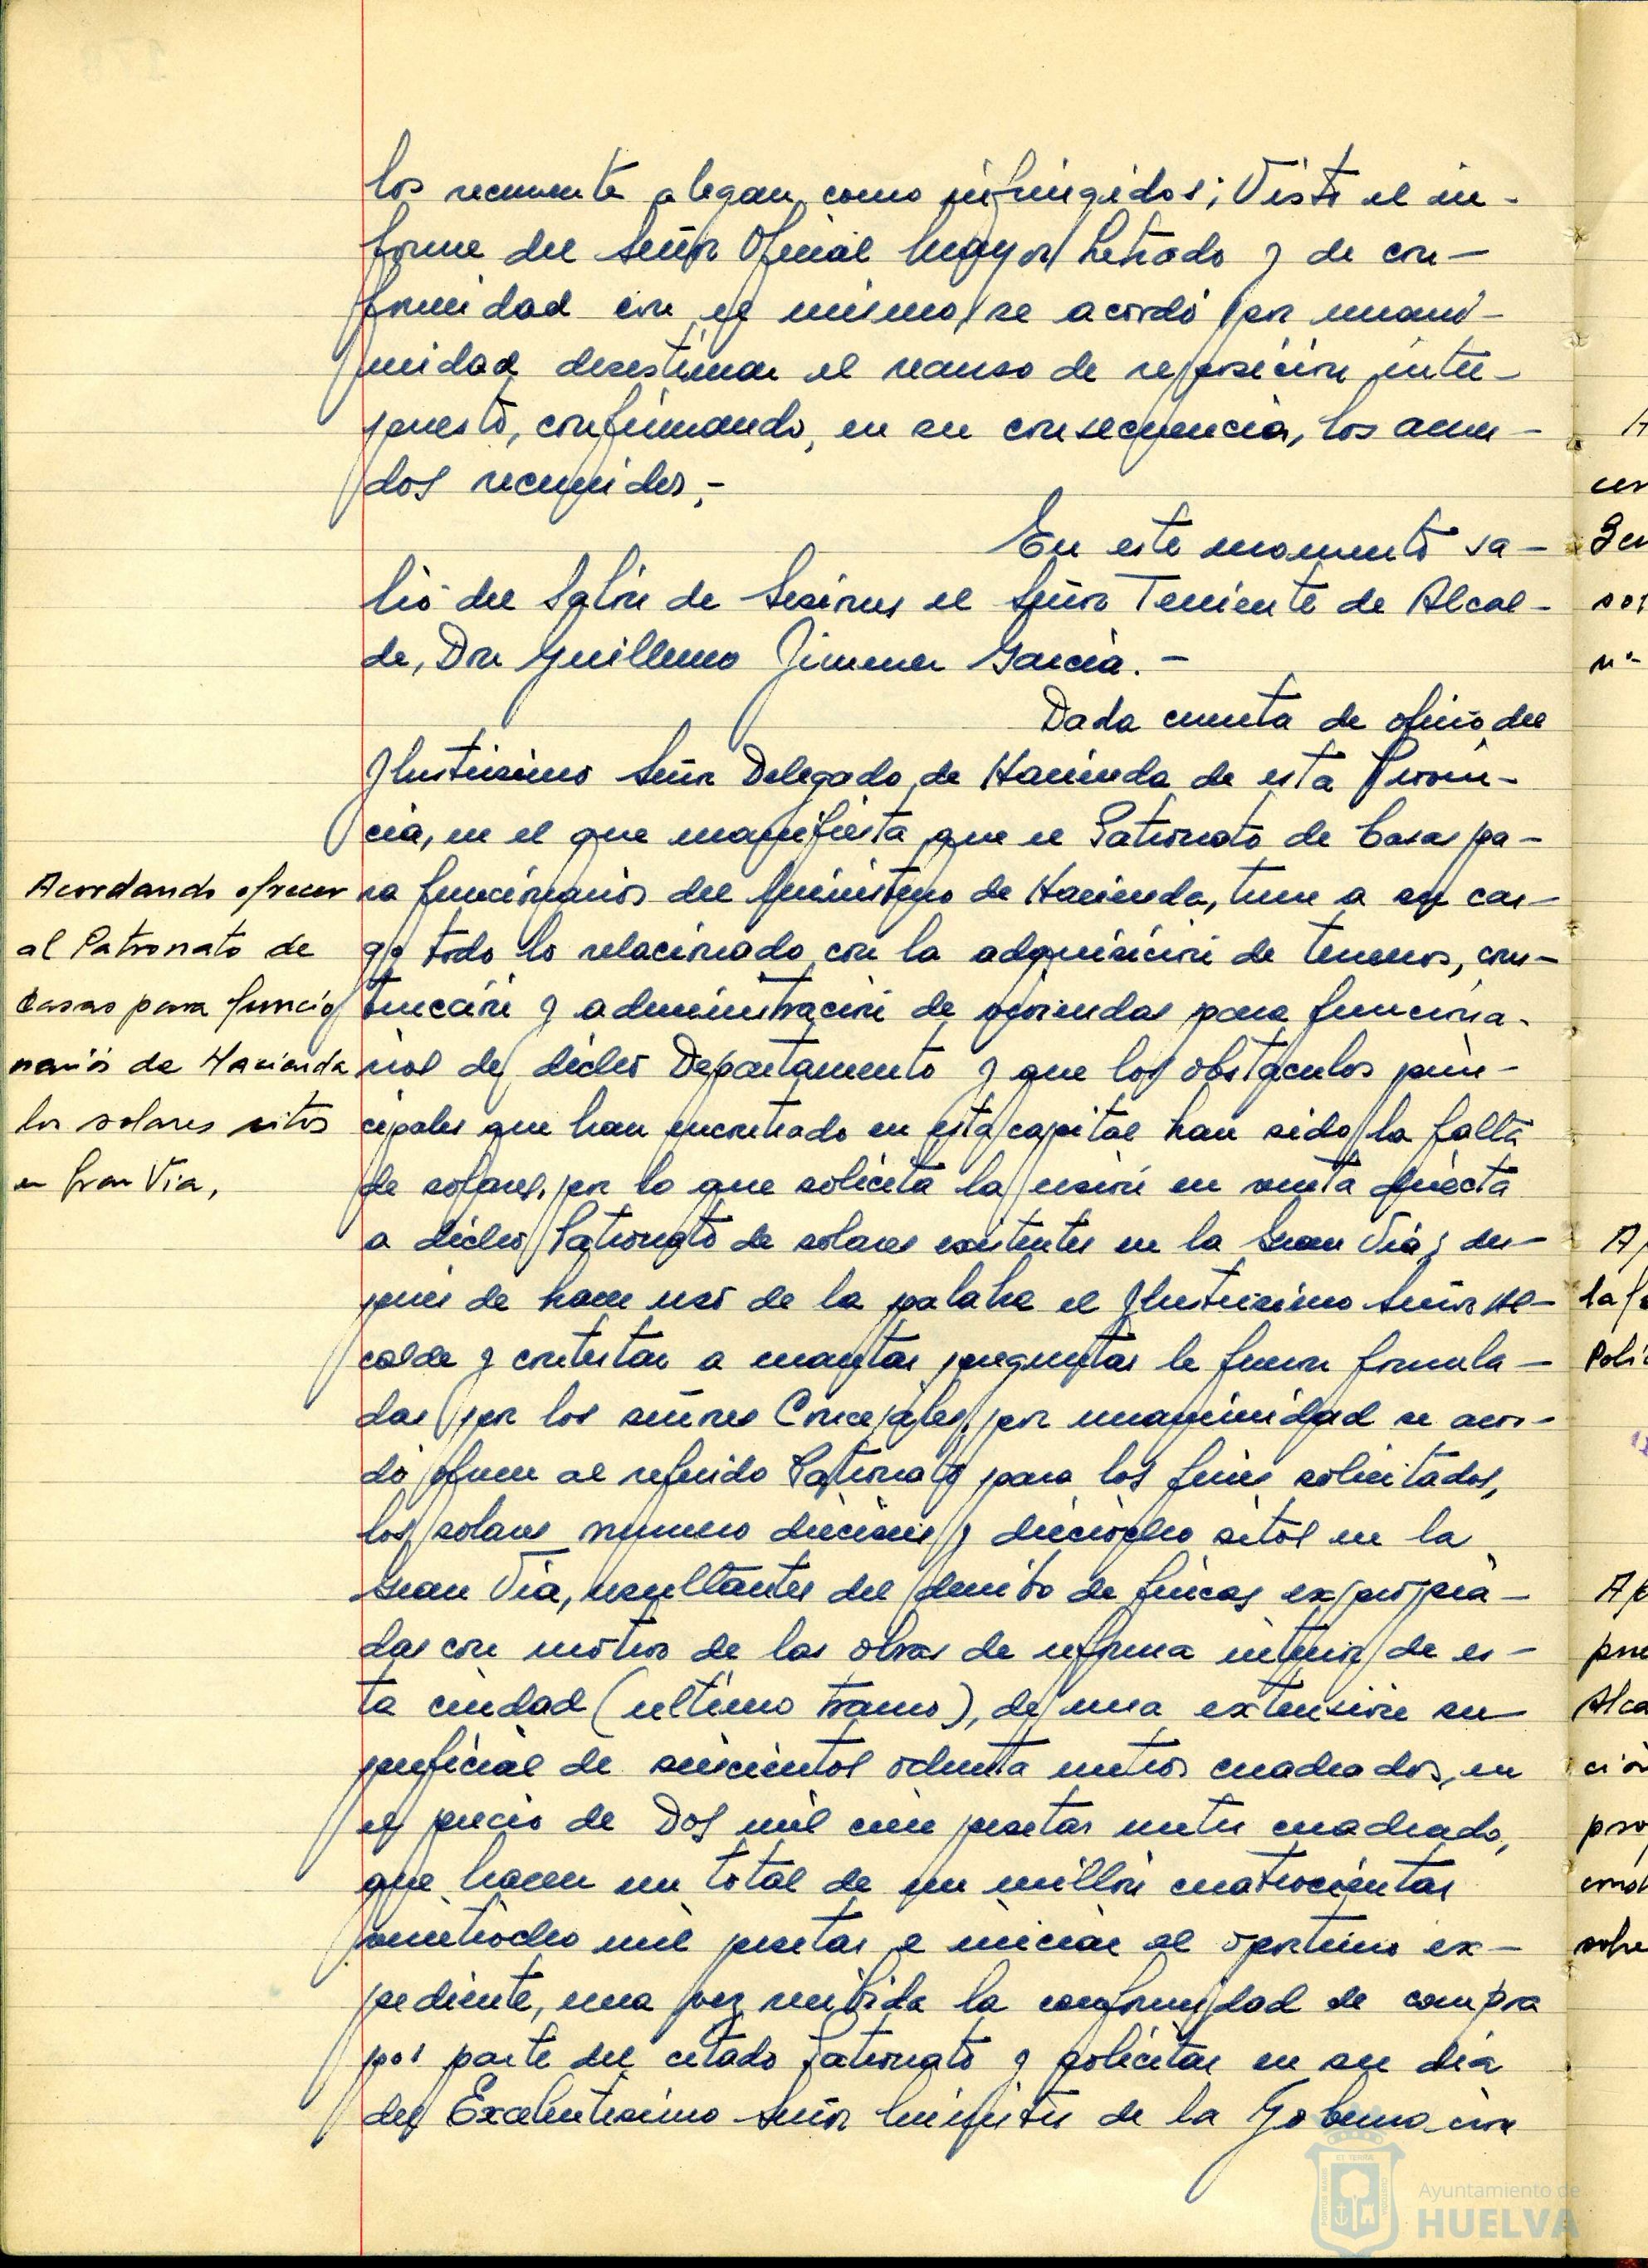 los recurrente alegan, como infringidos; Visto el in-
forme del Señor Oficial Mayor Letrado y de con-
formidad con el mismo se acordó por unani-
midad desestimar el recurso de reposición inter-
puesto, confirmando, en su consecuencia, los acuer-
dos recurridos.-
En este momento sa-
lió del Salón de Sesiones el Señor Teniente de Alcal-
de, Don Guillermo Jimenez García.-
Dada cuenta de oficio del
Ilustrisimo Señor Delegado de Hacienda de esta Provin-
cia, en el que manifiesta que el Patronato de Casas pa-
ra funcionarios del Ministerio de Hacienda, tiene a su car-
go todo lo relacionado con la adquisición de terrenos, cons-
trucción y administración de viviendas para funciona-
rios de dicho Departamento y que los obstaculos prin-
cipales que han encontrado en esta capital han sido la falta
de solares, por lo que solicita la cesión en venta directa
a dicho Patronato de solares existentes en la Gran Via; des-
pues de hacer uso de la palabra el Ilustrisimo Señor Al-
calde y contestar a cuantas preguntas le fueron formula-
das por los señores Concejales, por unanimidad se acor-
dó ofrecer al referido Patronato para los fines solicitados,
los solares numero dieciseis y dieciocho sitos en la
Gran Via, resultantes del derribo de fincas expropia-
das con motivo de las obras de reforma interior de es-
ta ciudad (ultimo tramo), de una extensión su-
perficial de seiscientos ochenta metros cuadrados, en
el precio de Dos mil cien pesetas metro cuadrado,
que hacen un total de un millón cuatrocientas
veintiocho mil pesetas e iniciar el oportuno ex-
pediente, una vez recibida la conformidad de compra
por parte del citado Patronato y solicitar en su dia
del Excelentisimo Señor Ministro de la Gobernación
Acordando ofrecer
al Patronato de
Casas para funcio
narios de Hacienda
los solares sitos
en Gran Via,
Ayuntamiento de
HUELVA